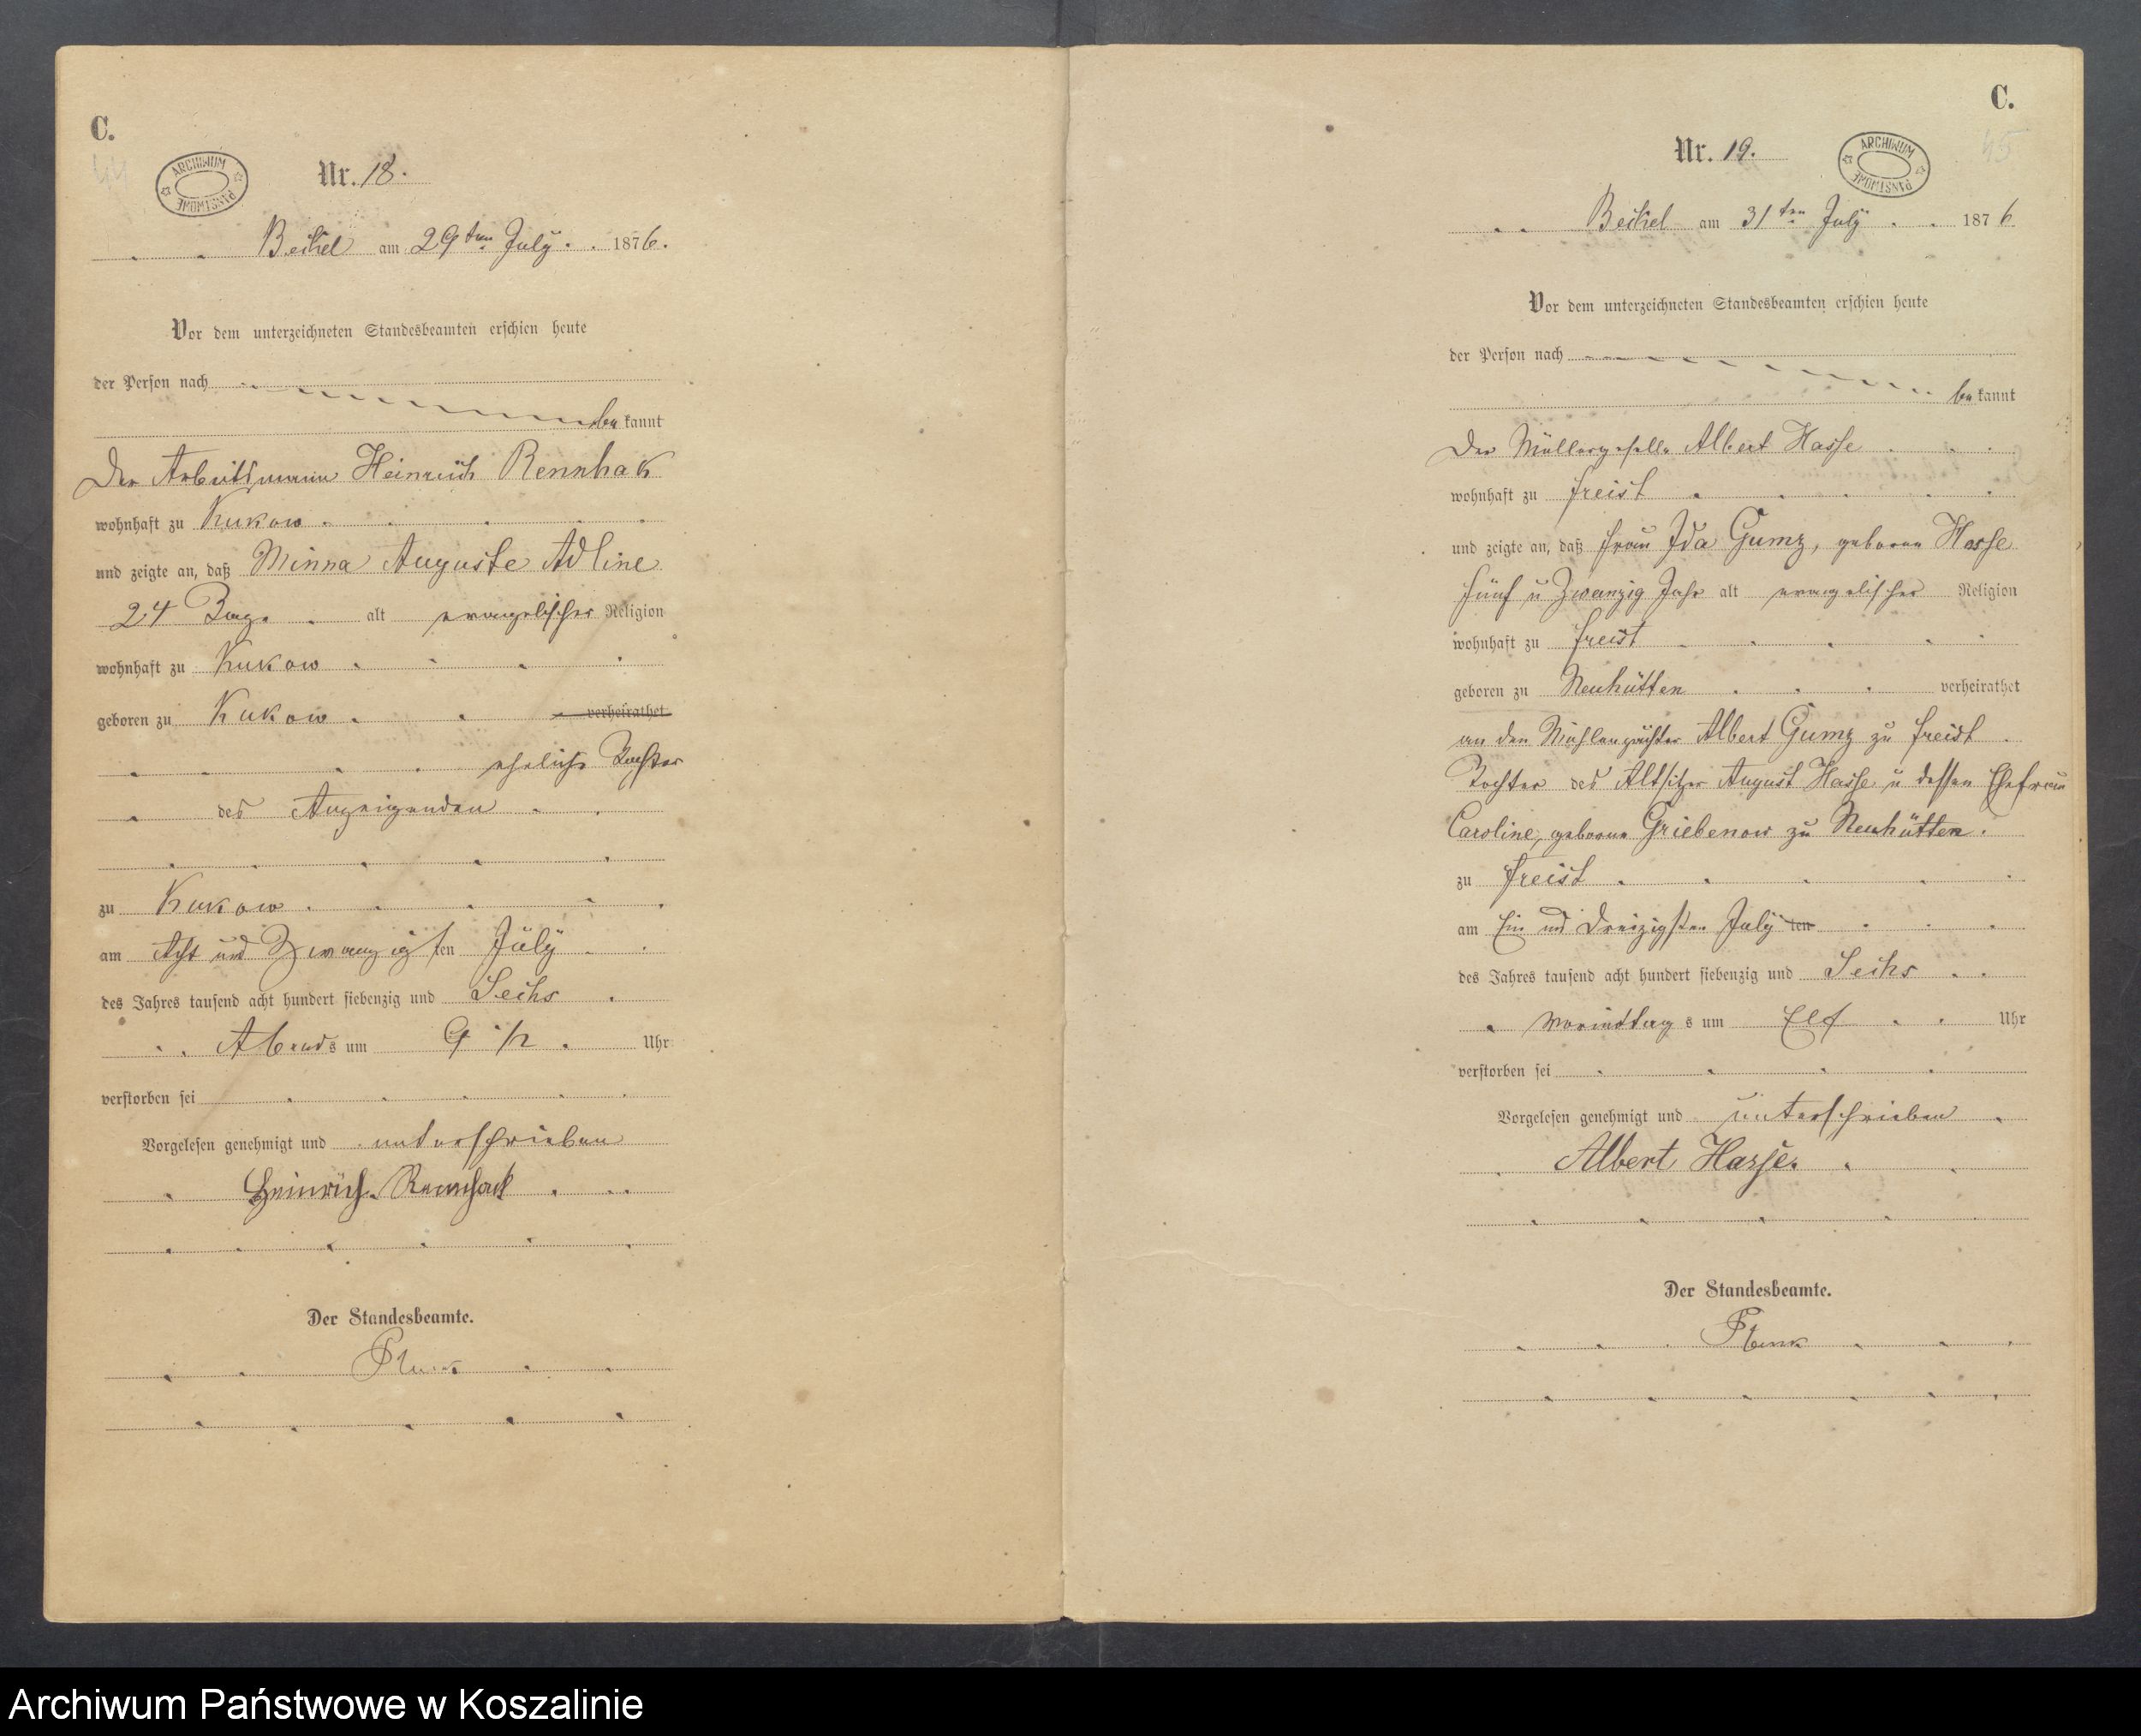 C.
44
ARCHIWUM PAŃSTWOWE
Nr. 18.
Beckel am 29ten July 1876.
Vor dem unterzeichneten Standesbeamten erschien heute
der Person nach
bekannt
Der Arbeitsmann Heinrich Rennhak
wohnhaft zu Kukow
und zeigte an, daß Minna Auguste Adline
24 Tage alt evangelischer Religion
wohnhaft zu Kukow
geboren zu Kukow verheirathet
eheliche Tochter
des Anzeigenden
zu Kukow
am Acht und Zwanzigsten July
des Jahres tausend acht hundert siebenzig und Sechs
Abends um 9 ½ Uhr
verstorben sei
Vorgelesen genehmigt und unterschrieben
Heinrich Rennhack
Der Standesbeamte.
C.
45
ARCHIWUM PAŃSTWOWE
Nr. 19.
Beckel am 31ten July 1876.
Vor dem unterzeichneten Standesbeamten erschien heute
der Person nach
bekannt
Der Müllergeselle Albert Hasse
wohnhaft zu Freist
und zeigte an, daß Frau Ida Gumz, geborne Hasse
Fünf u Zwanzig Jahr alt evangelischer Religion
wohnhaft zu Freist
geboren zu Neuhütten verheirathet
an den Mühlenpächter Albert Gumz zu Freist
Tochter des Altsitzer August Hasse u dessen Ehefrau
Caroline, geborne Griebenow zu Neuhütten.
zu Freist
am Ein und Dreizigsten July ten
des Jahres tausend acht hundert siebenzig und Sechs
Vormittags um Elf Uhr
verstorben sei
Vorgelesen genehmigt und unterschrieben
Albert Hasse.
Der Standesbeamte.
Archiwum Państwowe w Koszalinie